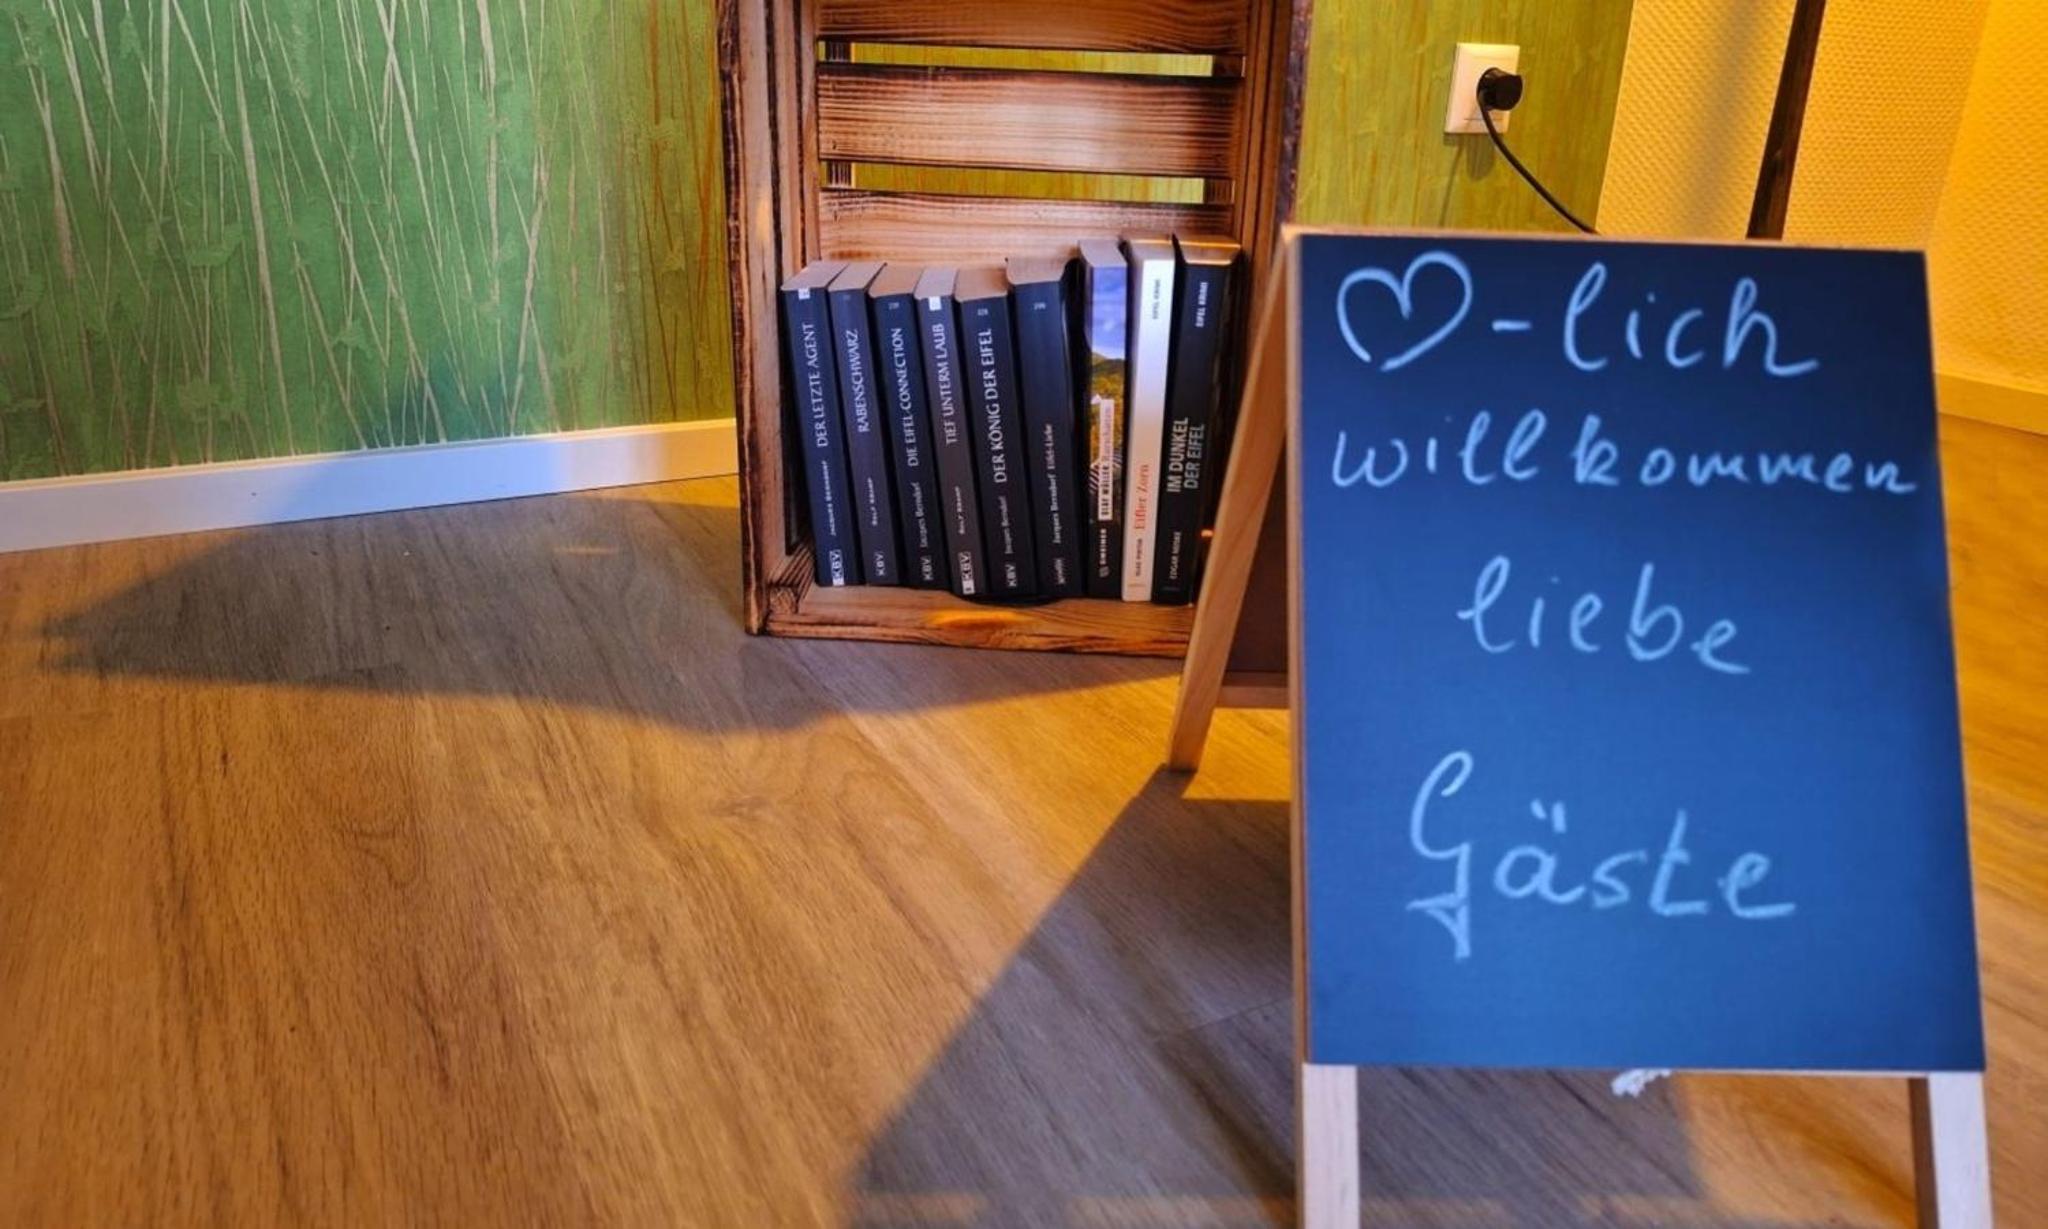 DER LETZTE AGENT
JACQUES BERNDORF
KBV
RABENSCHWARZ
RALF KRAMP
KBV
DIE EIFEL-CONNECTION
Jacques Berndorf
KBV
TIEF UNTERM LAUB
RALF KRAMP
KBV
DER KÖNIG DER EIFEL
Jacques Berndorf
KBV
Eifel-Liebe
Jacques Berndorf
grafit
OLAF MÜLLER
EIFEL KRIMI
Eifler Zorn
EIFEL KRIMI
IM DUNKEL
DER EIFEL
EDGAR NOSKE
♡-lich
willkommen
liebe
Gäste